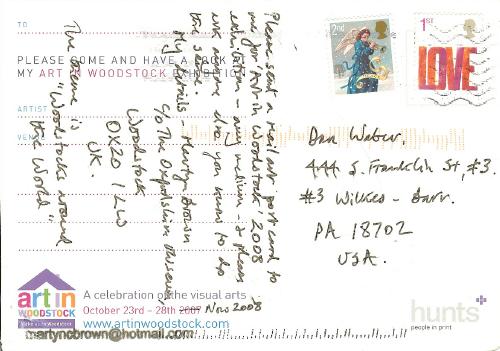 TO
PLEASE COME AND HAVE A LOOK
MY ART IN WOODSTOCK EXHIBITION
ARTIST
VENUE
Please send a mail art post card to
major Art in Woodstock 2008
exhibition - any medium - & please
ask anyone else you know to do
the same.
My details - Martyn Brown
c/o The Oxfordshire Museum
Woodstock
OX20 1
UK.
The theme is
"Woodstocks around
the World"
2nd
1ST
LOVE
Dan Weber.
444 S. Franklin St, #3.
#3 Wilkes - Barr.
PA 18702
USA.
art in
WOODSTOCK
A celebration of the visual arts
October 23rd - 28th 2007 Nov 2008
www.artinwoodstock.com
martyncbrown@hotmail.com
hunts
people in print